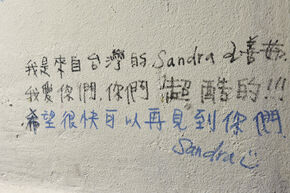 我是來自台灣的Sandra
我愛你們,你們超酷的!!!
希望很快可以再見到你們
Sandra